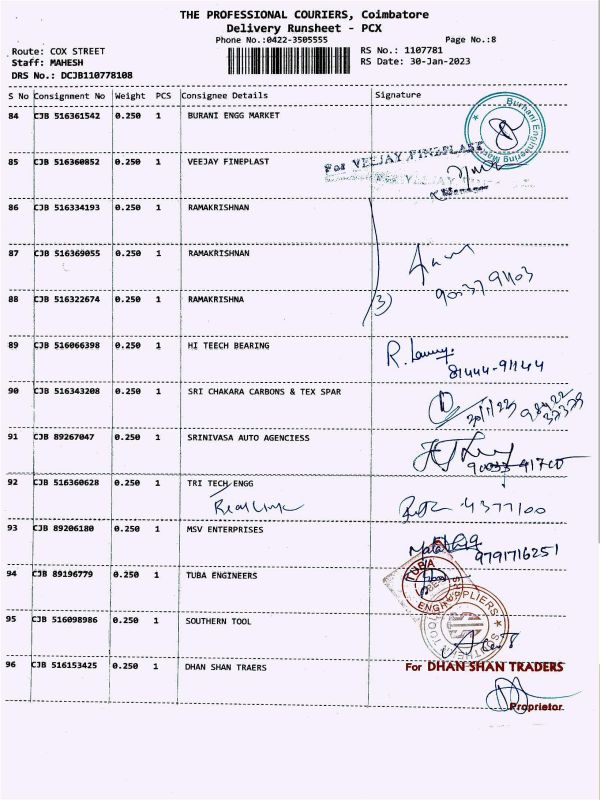 THE PROFESSIONAL COURIERS, Coimbatore
Delivery Runsheet - PCX
Phone No.:0422-3505555 Page No.:8
Route: COX STREET RS No.: 1107781
Staff: MAHESH RS Date: 30-Jan-2023
DRS No.: DCJB110778108
S No Consignment No Weight PCS Consignee Details Signature
84 CJB 516361542 0.250 1 BURANI ENGG MARKET
Burhani Engineering
85 CJB 516360852 0.250 1 VEEJAY FINEPLAST
For VEEJAY FINEPLAST
Manager
86 CJB 516334193 0.250 1 RAMAKRISHNAN
87 CJB 516369055 0.250 1 RAMAKRISHNAN
88 CJB 516322674 0.250 1 RAMAKRISHNA
3)
89 CJB 516066398 0.250 1 HI TEECH BEARING
81444-91144
90 CJB 516343208 0.250 1 SRI CHAKARA CARBONS & TEX SPAR
91 CJB 89267047 0.250 1 SRINIVASA AUTO AGENCIESS
92 CJB 516360628 0.250 1 TRI TECH ENGG
4377100
93 CJB 89206180 0.250 1 MSV ENTERPRISES
9791716251
94 CJB 89196779 0.250 1 TUBA ENGINEERS
TUBA
ENGG
95 CJB 516098986 0.250 1 SOUTHERN TOOL
SUPPLIERS
96 CJB 516153425 0.250 1 DHAN SHAN TRAERS
For DHAN SHAN TRADERS
Proprietor.